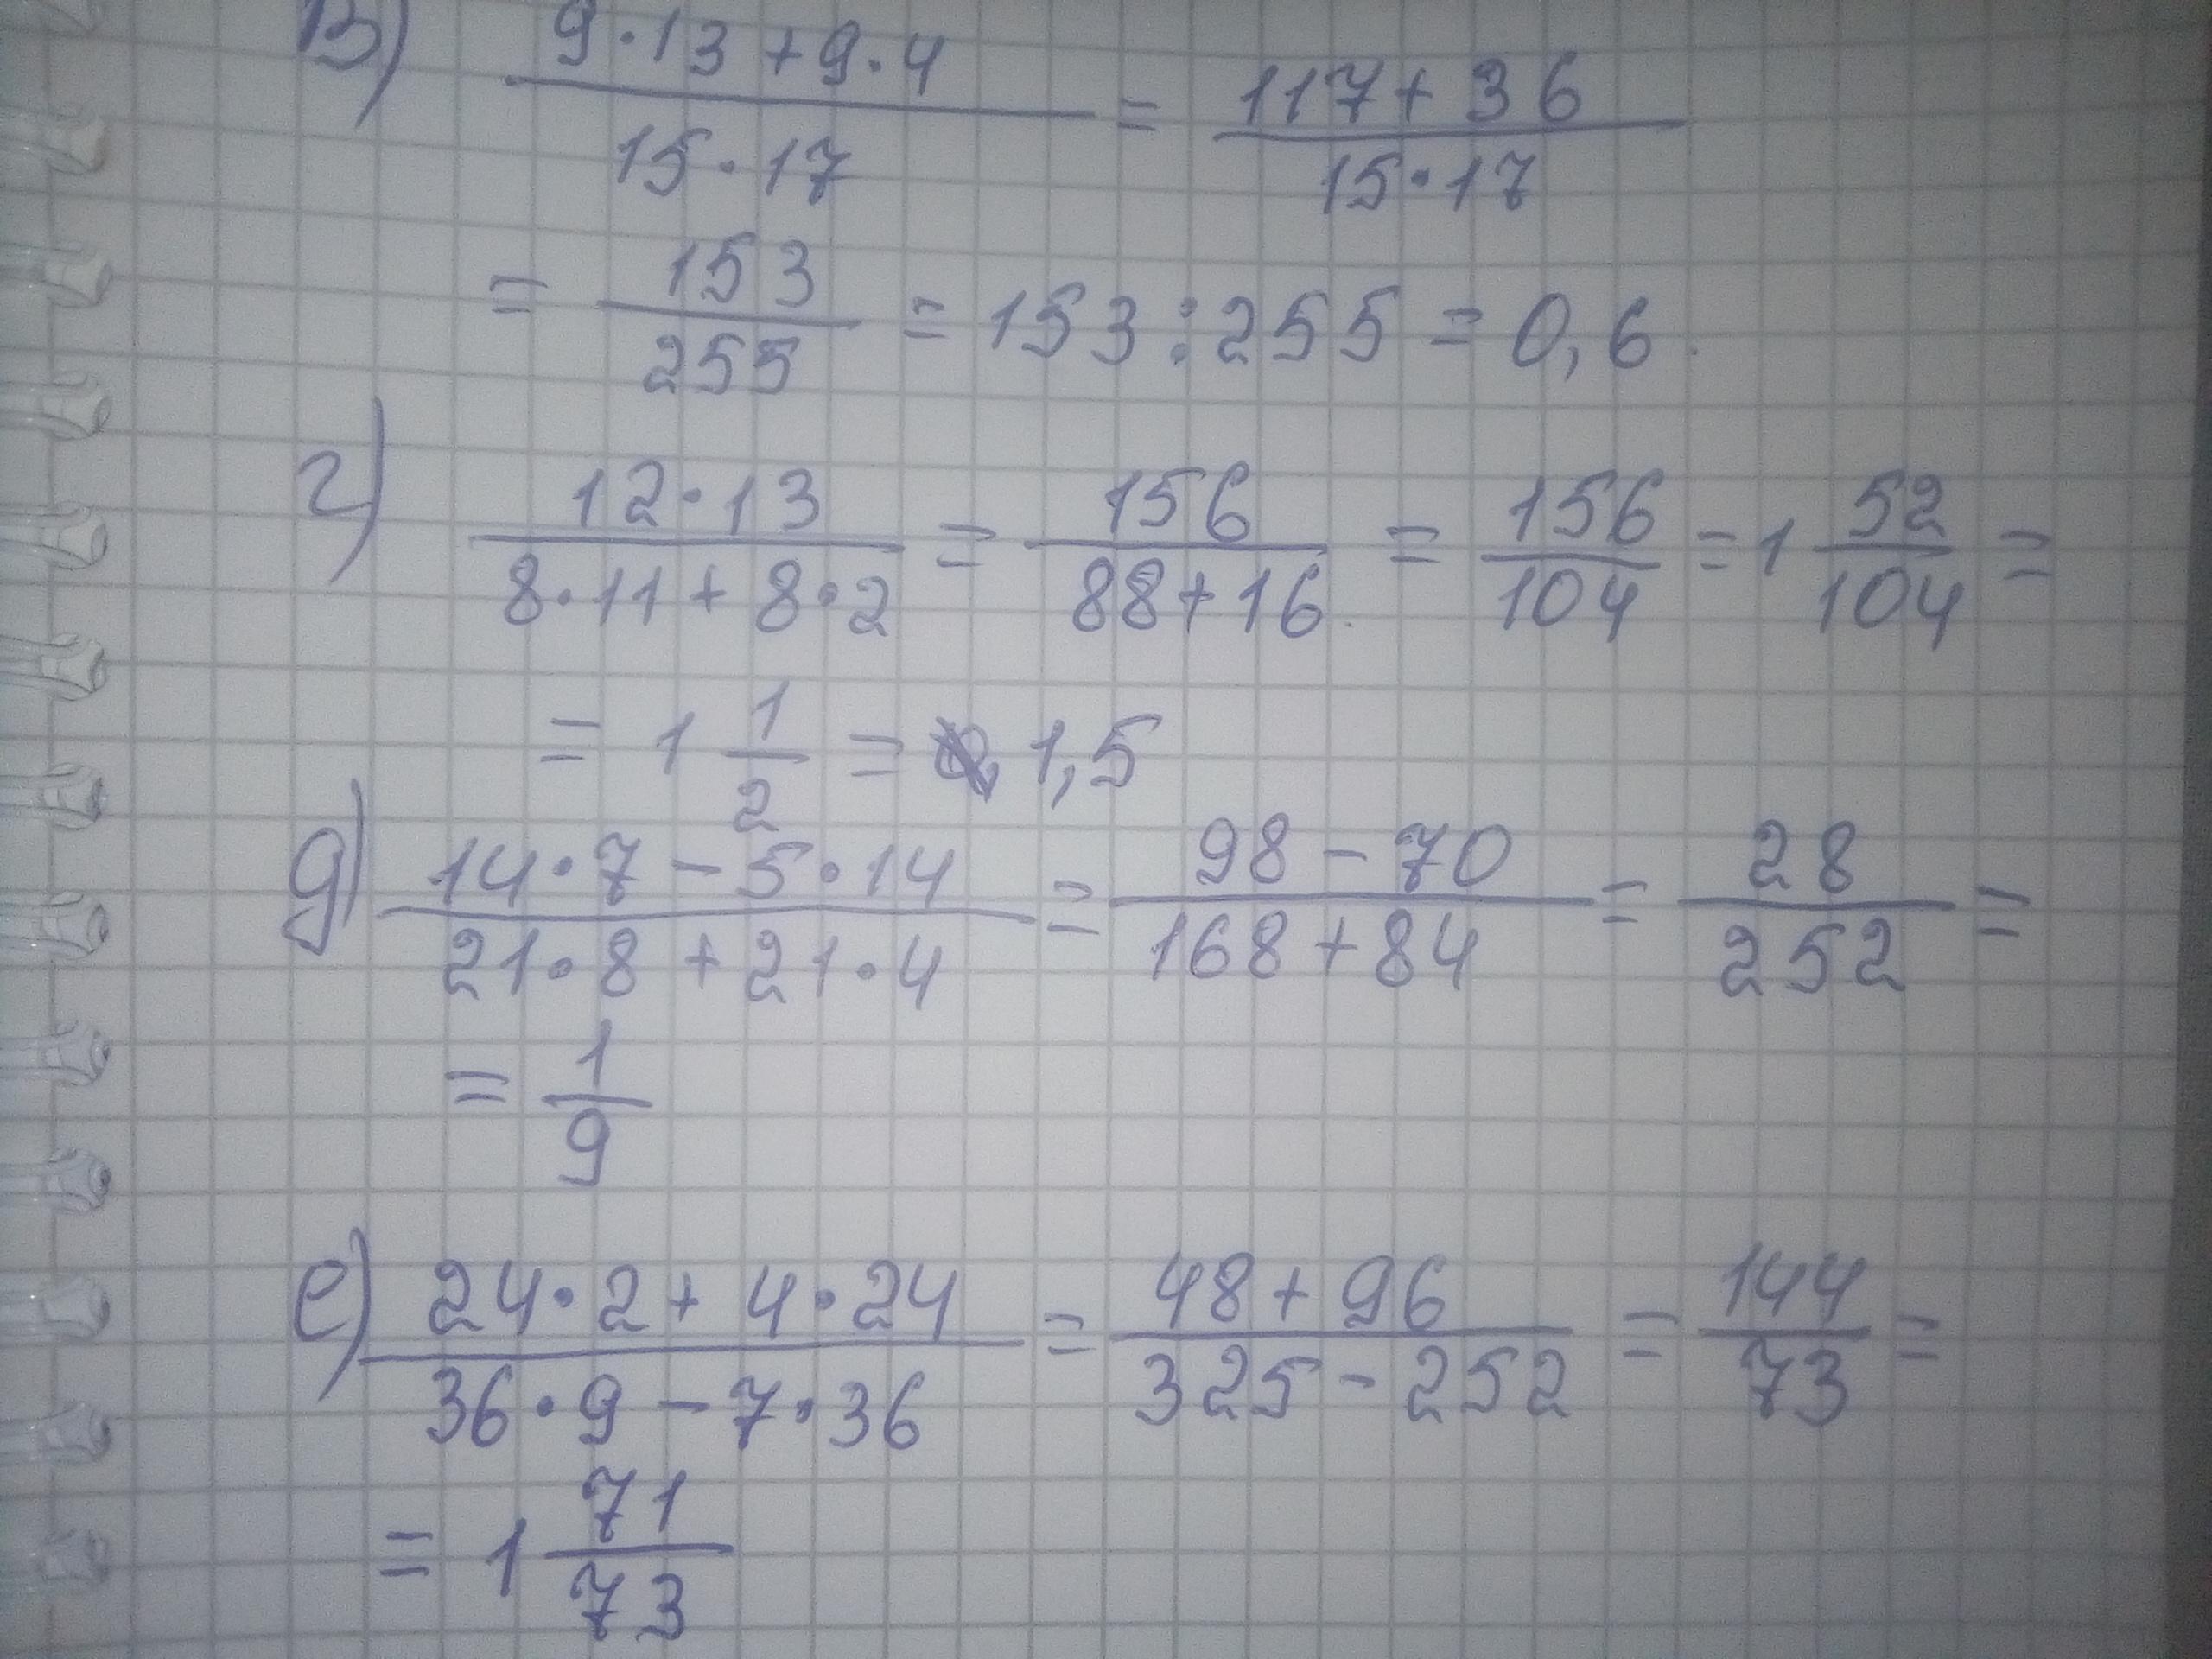 в) (9·13+9·4)/(15·17) = (117+36)/(15·17)
= 153/255 = 153:255 = 0,6.
г) (12·13)/(8·11+8·2) = 156/(88+16) = 156/104 = 1 52/104 =
= 1 1/2 = 1,5
д) (14·7-5·14)/(21·8+21·4) = (98-70)/(168+84) = 28/252 =
= 1/9
е) (24·2+4·24)/(36·9-7·36) = (48+96)/(325-252) = 144/73 =
= 1 71/73